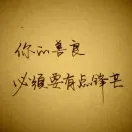 你的善良
必须要有点锋芒